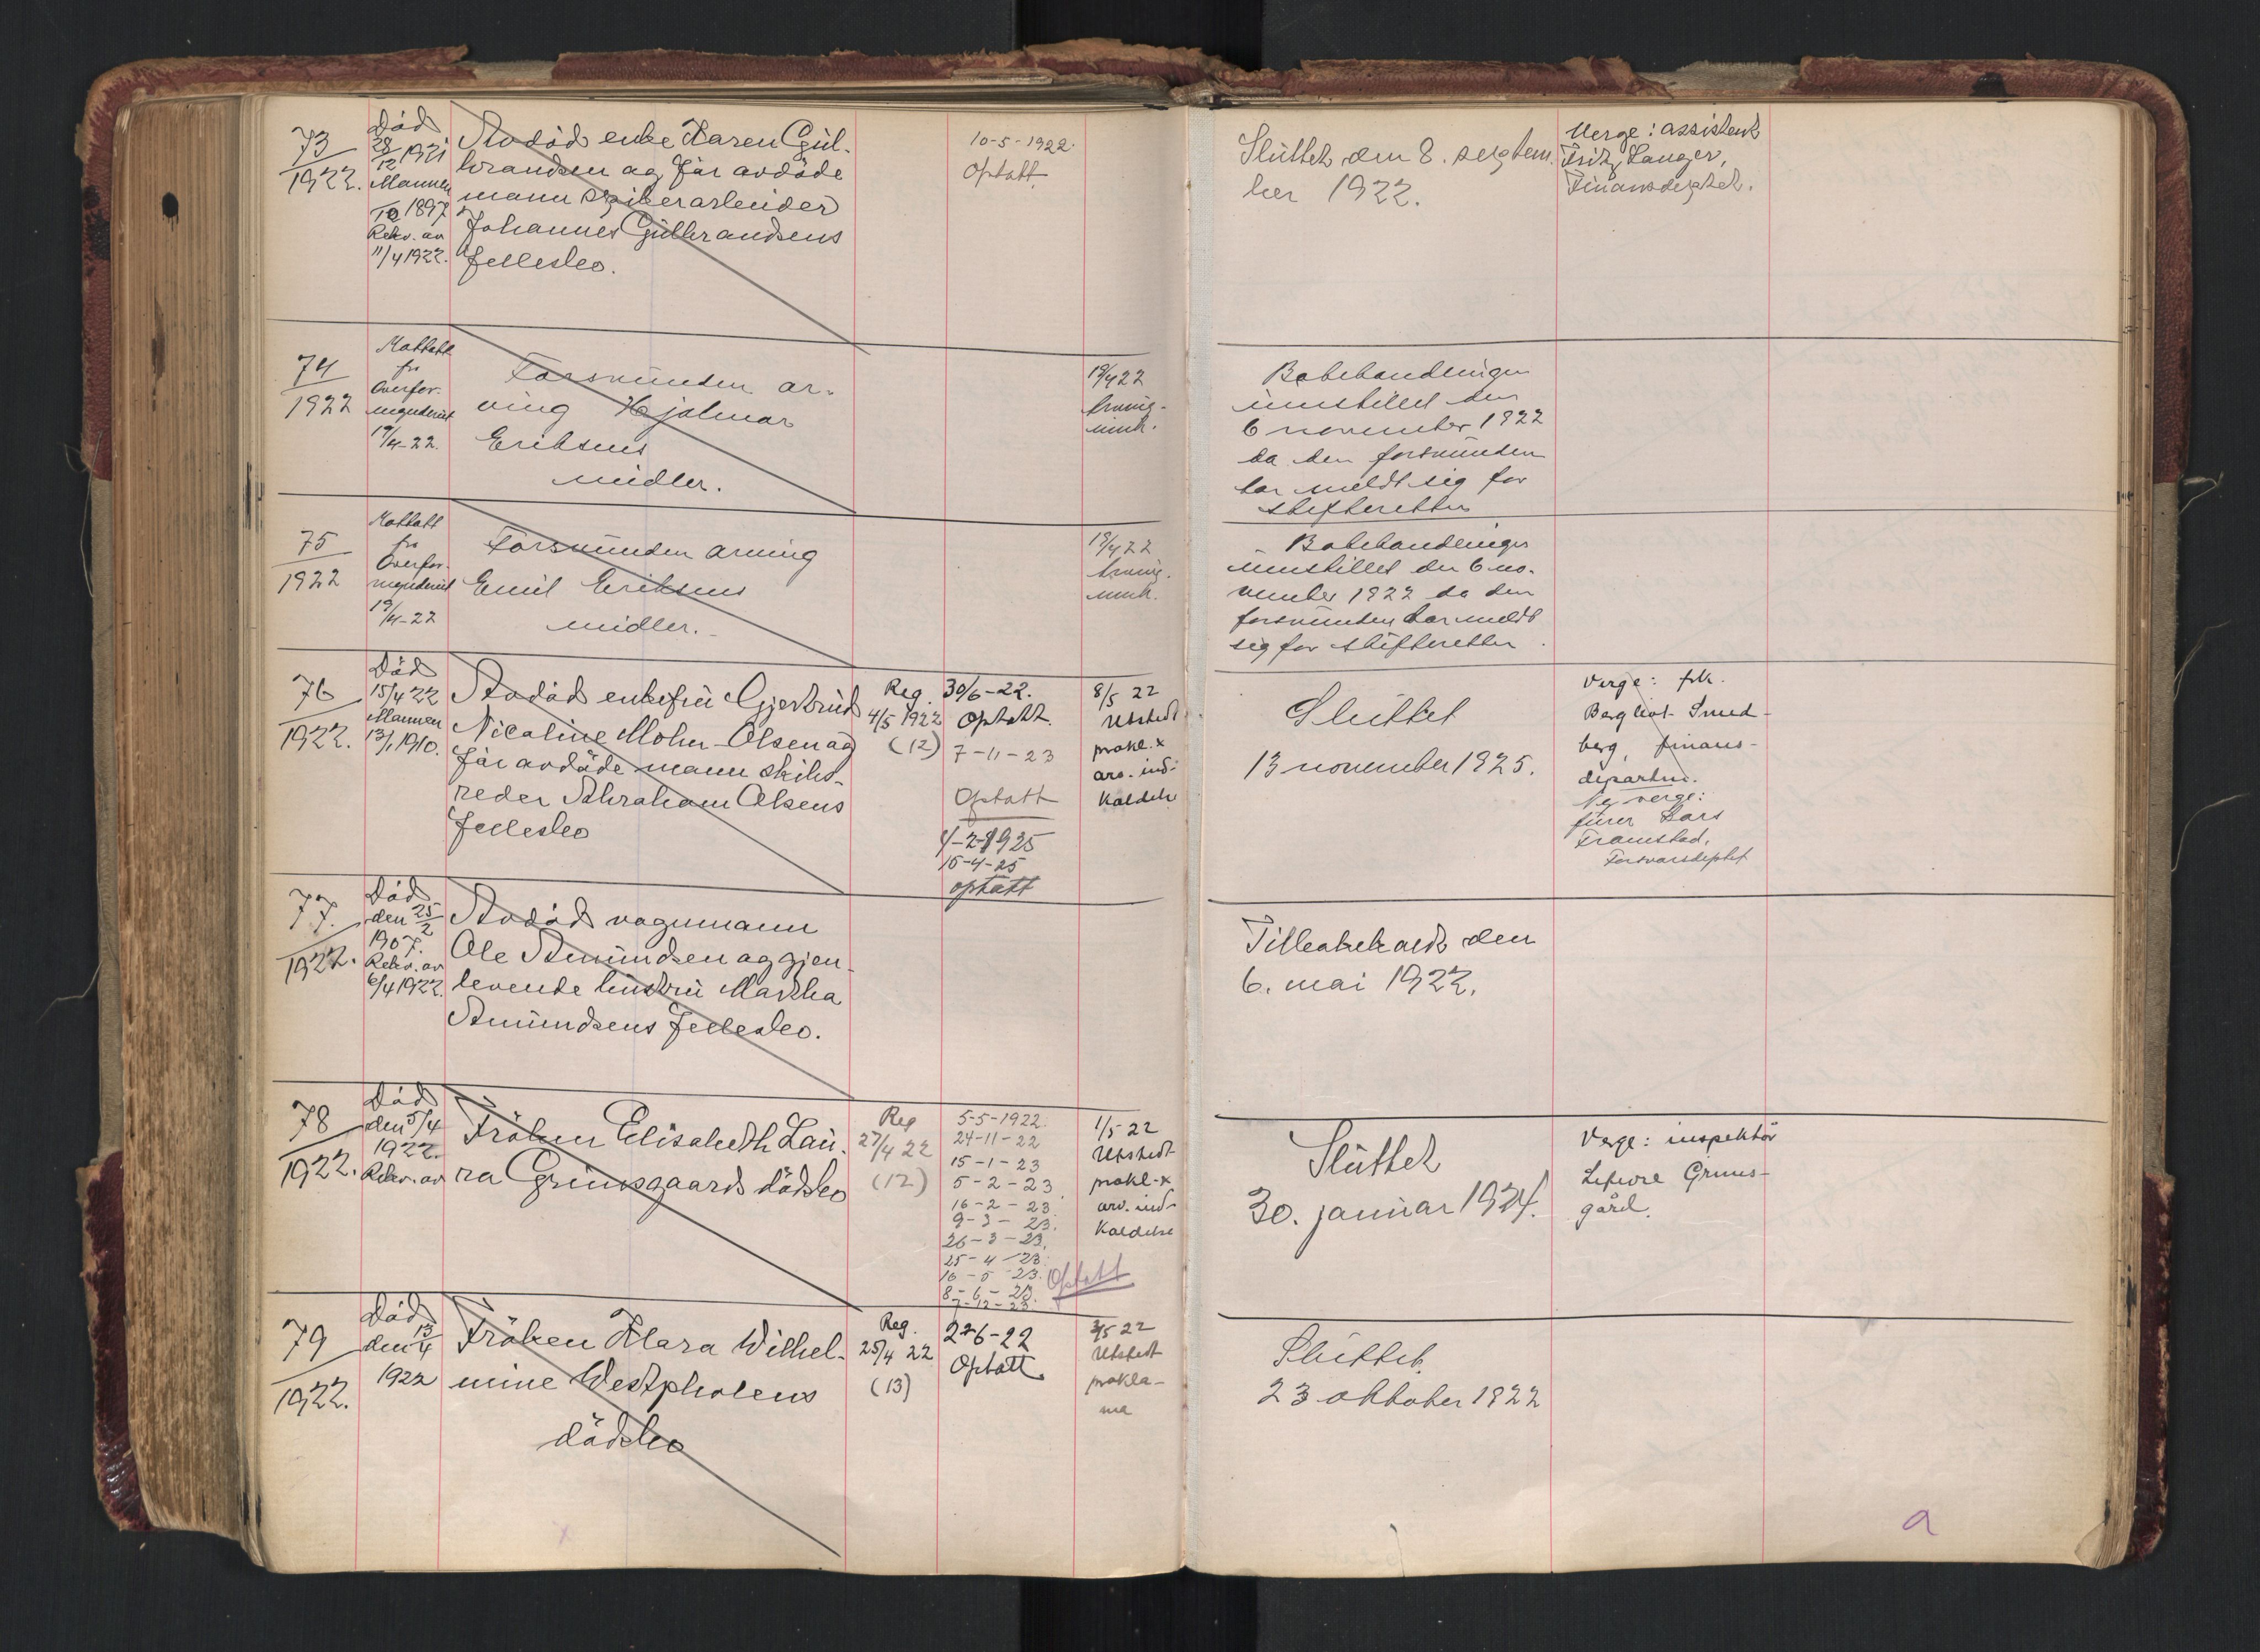 73
1922.
Död
28/12 1921
Mannen
1897
Rekv. av
11/4 1922.
Avdöd enke Karen Gul-
brandsen og før avdöde
mann
Johannes Gulbrandsens
fellesbo.
10-5-1922.
Optatt
Sluttet den 8. septem-
ber 1922.
Verge: assistent
Fritz Langer,
Finansdeptet.
74
1922
Mottatt
fra
Overfor-
mynderiet
19/4-22.
Forsvunden ar-
ving Hjalmar
Eriksens
midler.
19/4 22
Bobehandlingen
innstillet den
6 november 1922
da den forsvunden
har meldt sig for
skifteretten
75
1922
Mottatt
fra
Overfor-
mynderiet
19/4-22
Forsvunden arving
Emil Eriksens
midler.
19/4 22
Bobehandlingen
innstillet den 6 no-
vember 1922 da den
forsvunden har meldt
sig for skifteretten.
76
1922.
Död
15/4 22
Mannen
13/1 1910.
Avdöd enkefru Gjertrud
Nicoline Mohn-Olsen og
før avdöde mann skibs-
reder Abraham Olsens
fellesbo
Reg.
4/5 1922
(12)
30/6-22.
Optatt.
7-11-23
Optatt
4-2-1925
15-4-25
optatt
8/5 22
Utstedt
prokl. x
arv. ind-
kaldelse
Sluttet
13 november 1925.
Verge: frk.
Bergliot Smed-
berg, finans-
departm.
Ny verge:
furer Lars
Framstad,
Forsvarsdeptet
77.
1922.
Död
den 25/2
1907.
Rekv. av
6/4 1922.
Avdöd vognmann
Ole Amundsen og gjen-
levende hustru Martha
Amundsens fellesbo.
Tilbakekaldt den
6. mai 1922.
78
1922.
Död
den 5/4
1922.
Rekv. av
Fröken Elisabeth Lau-
ra Grimsgaards dödsbo
Reg
27/4 22
(12)
5-5-1922.
24-11-22
15-1-23
5-2-23
16-2-23
9-3-23.
26-3-23.
25-4-23.
16-5-23.
8-6-23.
7-12-23.
Optatt
1/5 22
Utstedt
prokl. x
arv. ind-
kaldelse
Sluttet
30. januar 1924.
Verge: inspektör
Grims-
gård.
79
1922.
Död
den 13/4
1922
Fröken Klara Wilhel-
mine Westpholens
dödsbo
Reg.
25/4 22
(13)
2-6-22
Optatt
3/5 22
Utstedt
prokla-
ma
Sluttet
23 oktober 1922
a